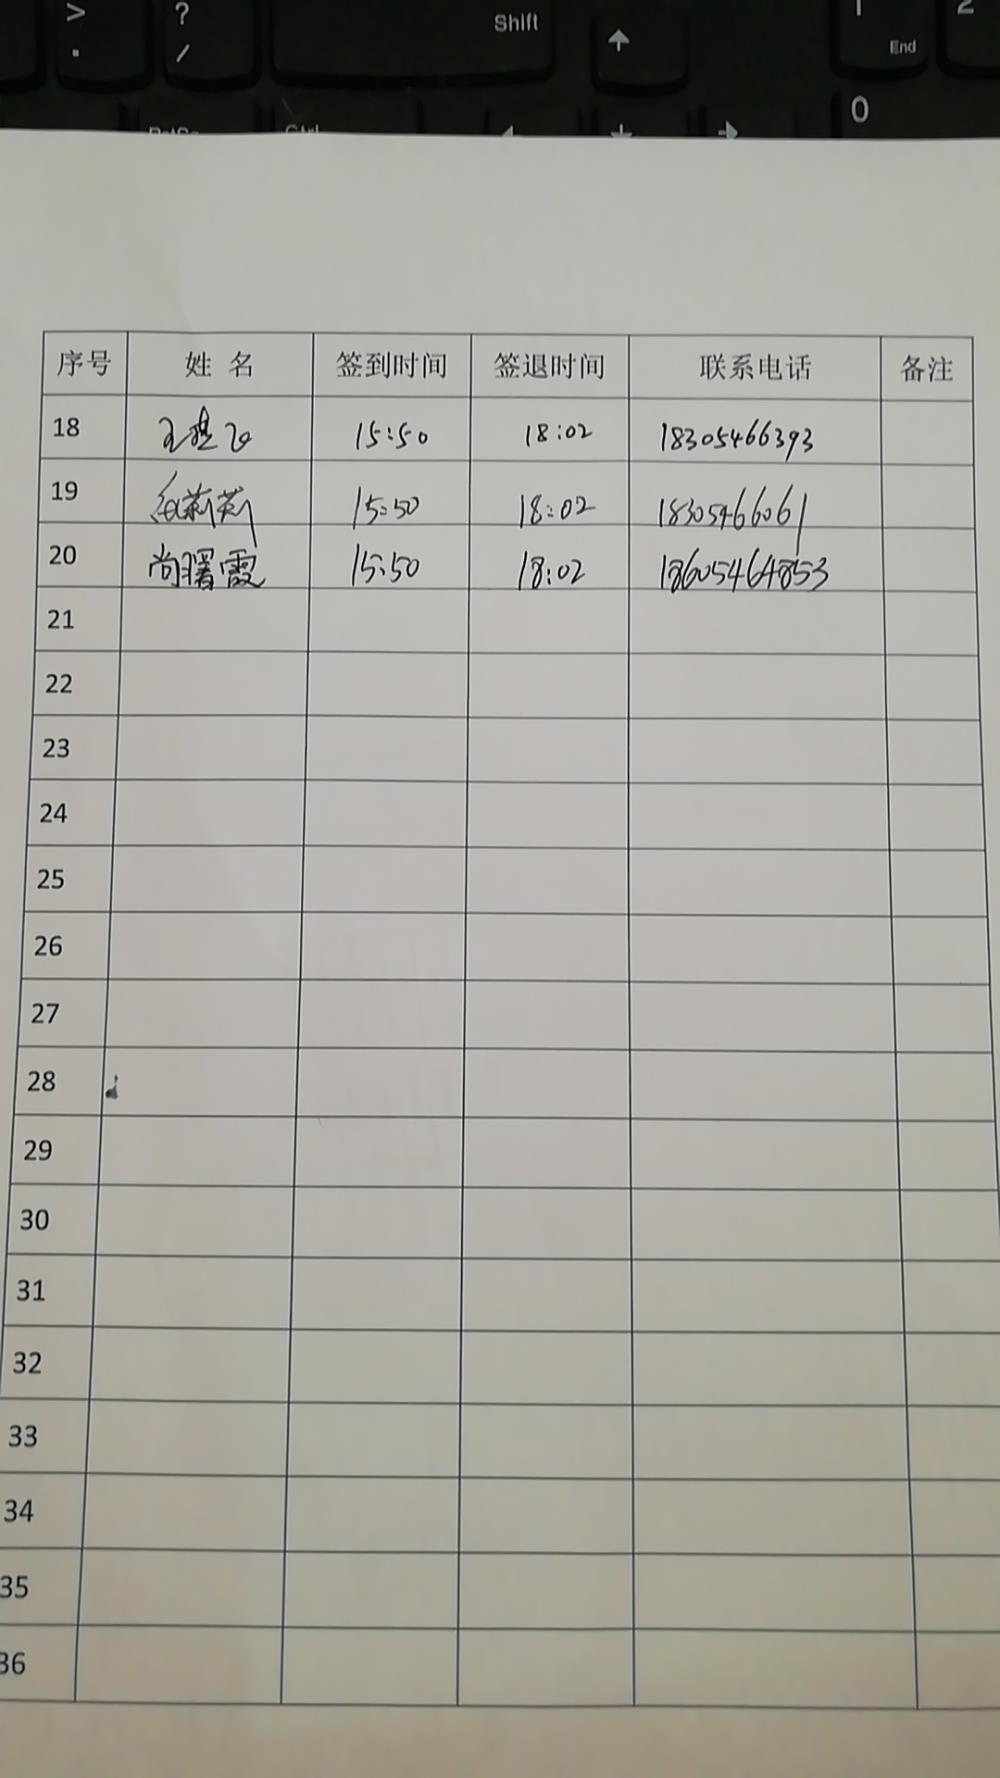 > ? Shift 1 2
. / ↑ End
Ctrl ← ↓ → 0
序号 姓 名 签到时间 签退时间 联系电话 备注
18 15:50 18:02 18305466393
19 莉莉 15:50 18:02 18305466061
20 尚曙霞 15:50 18:02 18605464853
21
22
23
24
25
26
27
28
29
30
31
32
33
34
35
36